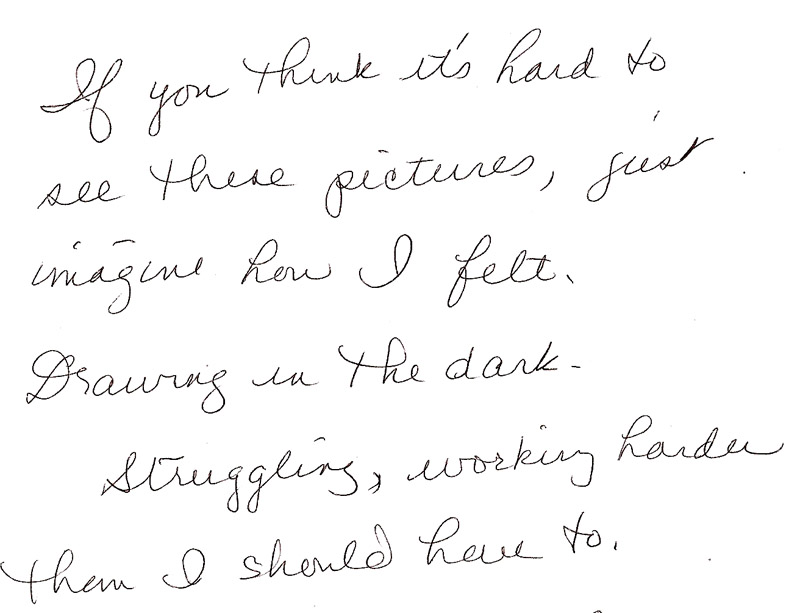 If you think it's hard to
see these pictures, just
imagine how I felt.
Drawing in the dark-
Struggling, working harder
than I should have to.